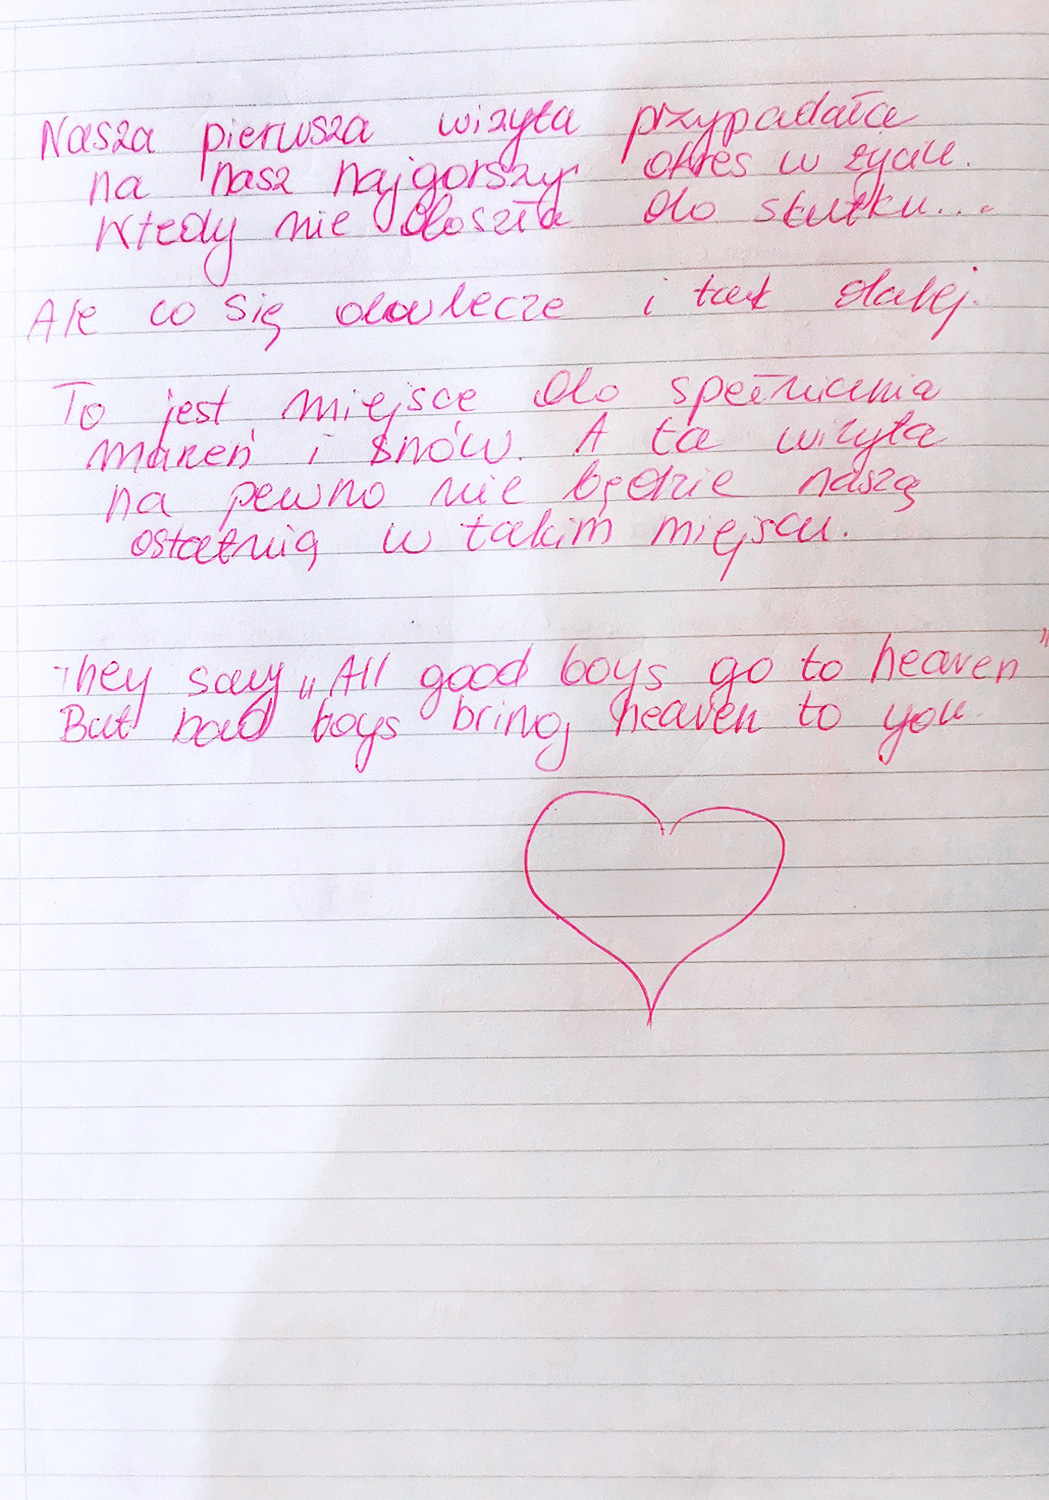 Nasza pierwsza wizyta przypadała
na nasz najgorszy okres w życiu.
Wtedy nie doszła do skutku...
Ale co się odwlecze i tak dalej.
To jest miejsce do spełniania
marzeń i snów. A ta wizyta
na pewno nie będzie naszą
ostatnią w takim miejscu.
They say „All good boys go to heaven"
But bad boys bring heaven to you